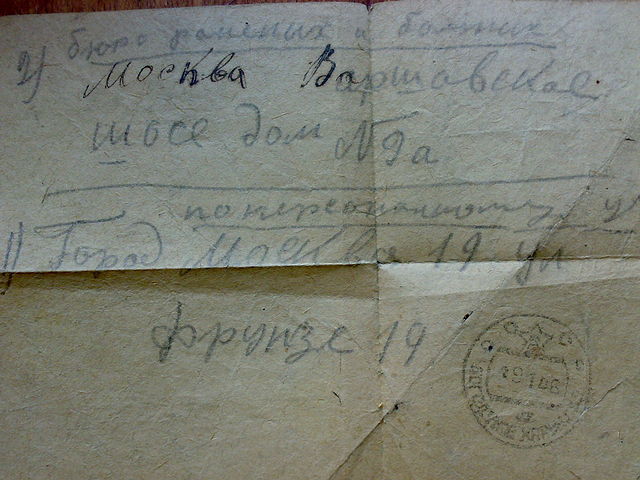 бюро раненых и больных
2) Москва Варшавское
шосе дом № 9а
по персональному у
1) Город Москва 19 ул
Фрунзе 19